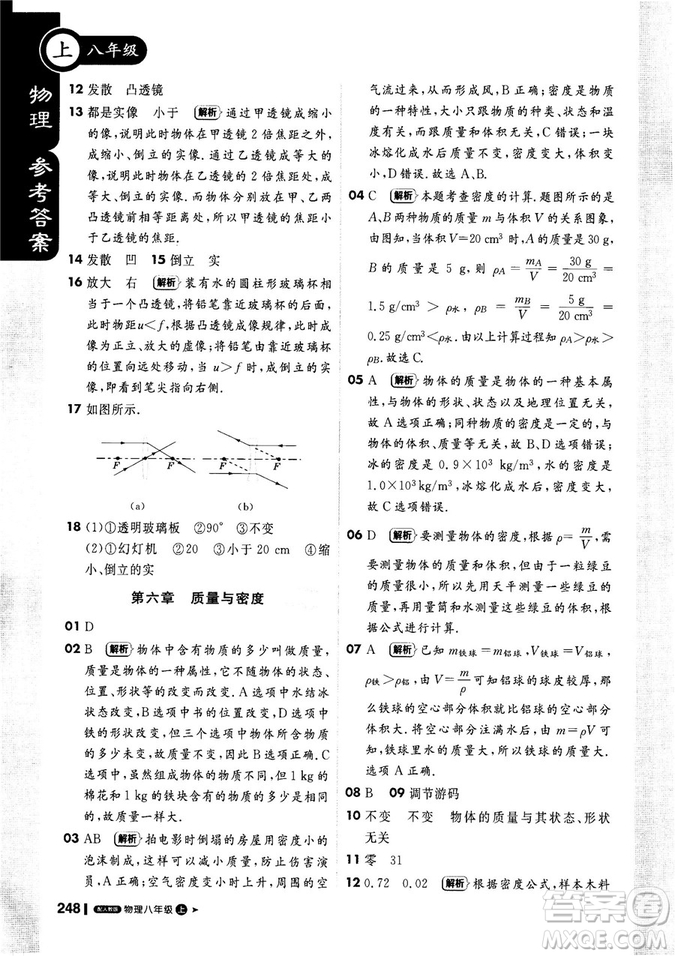 上 八年级
物理 参考答案
12 发散 凸透镜
13 都是实像 小于 解析 通过甲透镜成缩小
的像，说明此时物体在甲透镜2倍焦距之外，
成缩小、倒立的实像.通过乙透镜成等大的
像，说明此时物体在乙透镜2倍焦距处，成
等大、倒立的实像.因为此时物体在甲、乙两
凸透镜前等距处，所以，所以甲透镜的焦距小
于乙透镜的焦距.
14 发散 凹 15 倒立 实
16 放大 右 解析 装有水的圆柱形玻璃杯相
当于一个凸透镜，将铅笔靠近玻璃杯的后面，
此时物距u<f，根据凸透镜成像规律，此时成
正立、放大的虚像；将铅笔由靠近玻璃杯
的位置向远处移动，当u>f时，成倒立的实
像，即看到笔尖指向右侧.
17 如图所示.
F F F F
(a) (b)
18 (1)①透明玻璃板 ②90° ③不变
(2)①幻灯机 ②20 ③小于20 cm ④缩
小、倒立的实
第六章 质量与密度
01 D
02 B 解析 物体中含有物质的多少叫做质量，
质量是物体的一种属性，不随物体的状态、
位置、形状等的改变而改变.A选项中水结冰
只是状态改变，C选项中物体只是位置改变，
D选项中铁块只是形状改变，但三个选项中
物质的多少未变，故质量不变.B
选项中，虽然组成物体的物质不同，但1 kg的
棉花和1 kg的铁块含有物质的多少一样，故
质量一样大.
03 AB 解析 拍电影时倒塌的房屋用密度小的
泡沫制成，质量比较小，可以防止伤害演
员，A正确；空气密度变小时上升，周围的冷空
248 配人教版 物理八年级 上
气流过来，从而形成风，B正确；密度是物质
的一种特性，大小只与物质的种类、状态等
有关，而跟质量、体积无关，C错误；一块
冰熔化成水后质量不变，密度变大，体积变
小，D错误.故选AB.
04 C 解析 本题考查密度的计算.题图所示的
A、B两种物质的质量m与体积V的关系图象，
由图可知，当体积V=20 cm³时，A的质量是30 g，
B的质量是5 g，则ρA=mA/V=30 g/20 cm³=
1.5 g/cm³>ρ水，ρB=mB/V=5 g/20 cm³=
0.25 g/cm³<ρ水.由以上计算过程可知ρA>ρ水>
ρB.故选C.
05 A 解析 物体的质量是物体的一种基本属
性，与物体的形状、状态以及地理位置无关，
故A选项正确；同种物质的密度一般不变，
与物体的体积、质量无关，故B、D选项错误；
冰的密度是0.9×10³ kg/m³，水的密度是
1.0×10³ kg/m³，冰熔化成水，密度发生改变，
故C选项错误.
06 D 解析 要测量物体的密度，根据ρ=m/V可
知，应测量物体的质量和体积.由于一粒绿豆
的质量和体积都很小，所以先用天平测量一些绿豆的
质量，再用量筒和水测量这些绿豆的总体积，
根据公式计算出密度.
07 A 解析 已知m铁球=m铝球，V铁球=V铝球，
ρ铁>ρ铝，由V=m/ρ可知铝球的球皮较厚，那
么铁球的空心部分体积比铝球的空心部分
体积大，将空心部分注满水后，由m=ρV可
知，铁球里水的质量大，故总质量大的是铁
球.故选A.
08 B 09 调节游码
10 不变 不变 物体的质量与其状态、形状
无关
11 零 31
12 0.72 0.02 解析 根据密度公式，样本木料
答案圈
MXQE.COM